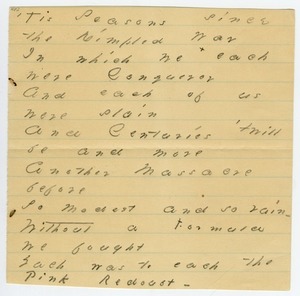 'Tis Seasons since
the Dimpled War
In which we each
were Conqueror
And each of us
were slain
And Centuries 'twill
be and more
Another Massacre
before
So modest and so vain -
Without a Formula
we fought
Each was to each the
Pink Redoubt -